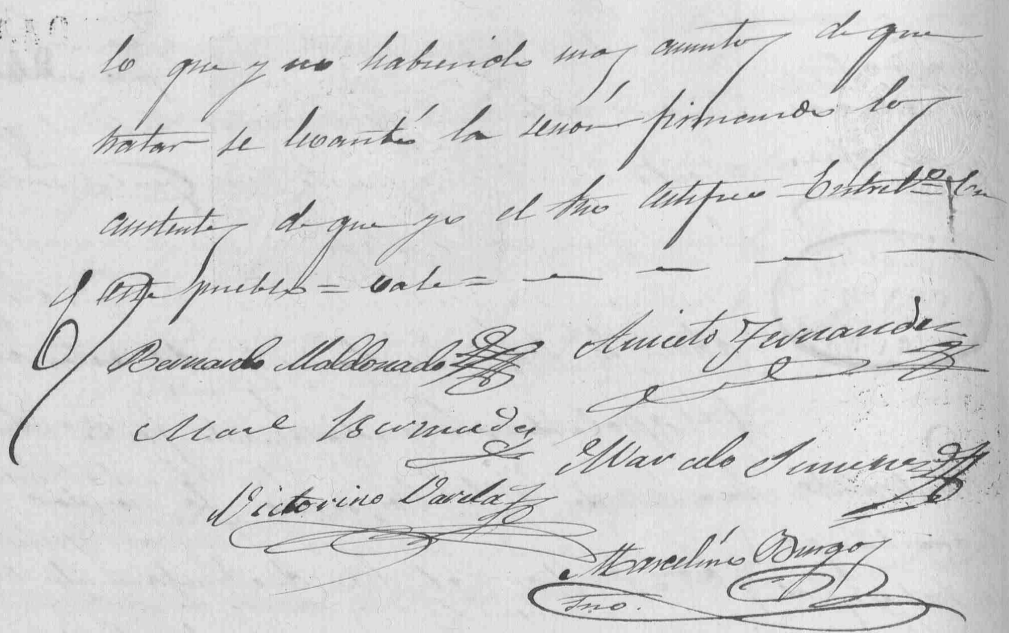 lo que y no habiendo mas asuntos de que
tratar se levantó la sesión firmando los
asistentes de que yo el Srio certifico = Entre ls = En
este pueblo = vale =
Bernardo Maldonado Aniceto Fernandez
Manl Bermudez
Marcelo Jimenez
Victorino Varela
Marcelino Burgos
Srio.